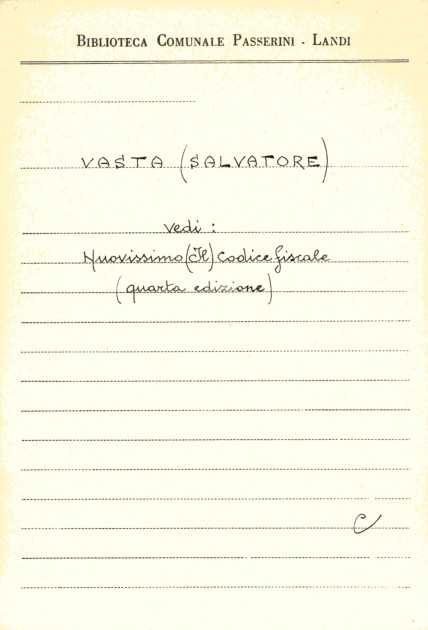 BIBLIOTECA COMUNALE PASSERINI - LANDI
VASTA (SALVATORE)
Vedi :
Nuovissimo (Il) Codice fiscale
(quarta edizione)
C